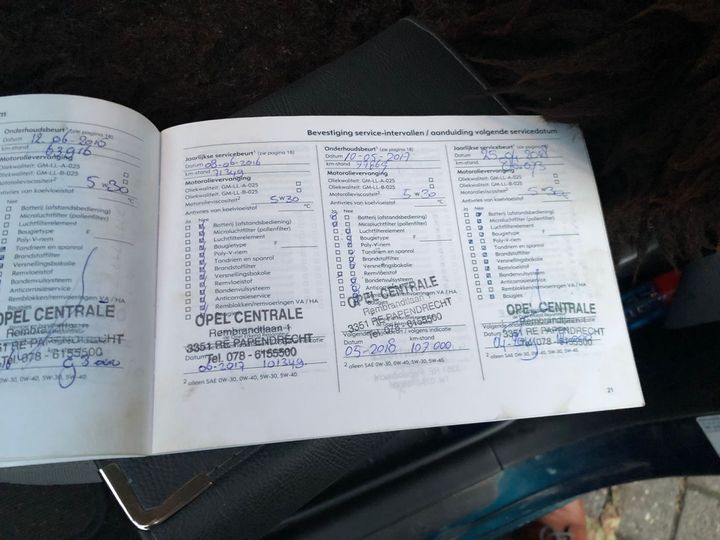 Bevestiging service-intervallen / aanduiding volgende servicedatum
Onderhoudsbeurt¹ (zie pagina 18)
Datum 12-06-
km-stand 63916
Motorolievervanging
Oliekwaliteit: GM-LL-A-025
Oliekwaliteit: GM-LL-B-025
Motorolieviscositeit² 5W30
Antivries van koelvloeistof
Ja Nee
Batterij (afstandsbediening)
Microluchtfilter (pollenfilter)
Luchtfilterelement
Bougietype
Poly-V-riem
Tandriem en spanrol
Brandstoffilter
Versnellingsbakolie
Remvloeistof
Bandenvulsysteem
Anticorrosieservice
Remblokken/remvoeringen VA / HA
OPEL CENTRALE
Rembrandtlaan
3351 RE PAPENDRECHT
Tel. 078 - 6155500
² alleen SAE 0W-30, 0W-40, 5W-30, 5W-40.
Jaarlijkse servicebeurt¹ (zie pagina 18)
Datum 08-06-2016
km-stand 71349
Motorolievervanging
Oliekwaliteit: GM-LL-A-025
Oliekwaliteit: GM-LL-B-025
Motorolieviscositeit² 5W30
Antivries van koelvloeistof °C
Ja Nee
Batterij (afstandsbediening)
Microluchtfilter (pollenfilter)
Luchtfilterelement
Bougietype F
Poly-V-riem
Tandriem en spanrol
Brandstoffilter
Versnellingsbakolie
Remvloeistof
Bandenvulsysteem
Anticorrosieservice
Remblokken/remvoeringen VA / HA
OPEL CENTRALE
Rembrandtlaan 1
3351 RE PAPENDRECHT
Tel. 078 - 6155500
Datum
06-2017 101349
² alleen SAE 0W-30, 0W-40, 5W-30, 5W-40.
Onderhoudsbeurt¹ (zie pagina 18)
Datum 10-05-2017
km-stand 77669
Motorolievervanging
Oliekwaliteit: GM-LL-A-025
Oliekwaliteit: GM-LL-B-025
Motorolieviscositeit² 5W30
Antivries van koelvloeistof °C
Ja Nee
Batterij (afstandsbediening)
Microluchtfilter (pollenfilter)
Luchtfilterelement
Bougietype F
Poly-V-riem
Tandriem en spanrol
Brandstoffilter
Versnellingsbakolie
Remvloeistof
Bandenvulsysteem
OPEL CENTRALE
Rembrandtlaan
3351 RE PAPENDRECHT
Tel. 078 - 6155500
Datum km-stand
05-2018 107.000
² alleen SAE 0W-30, 0W-40, 5W-30, 5W-40.
Jaarlijkse servicebeurt¹ (zie pagina 18)
Datum 25-04-
km-stand
Motorolievervanging
Oliekwaliteit: GM-LL-A-025
Oliekwaliteit: GM-LL-B-025
Motorolieviscositeit² 5W30
Antivries van koelvloeistof °C
Ja Nee
Batterij (afstandsbediening)
Microluchtfilter (pollenfilter)
Luchtfilterelement
Bougietype
Poly-V-riem
Tandriem en spanrol
Brandstoffilter
Versnellingsbakolie
Remvloeistof
Bandenvulsysteem
Anticorrosieservice
Remblokken/remvoeringen VA / HA
Bougies
OPEL CENTRALE
Rembrandtlaan
3351 RE PAPENDRECHT
Tel. 078 - 6155500
² alleen SAE 0W-30, 0W-40, 5W-30, 5W-40.
21